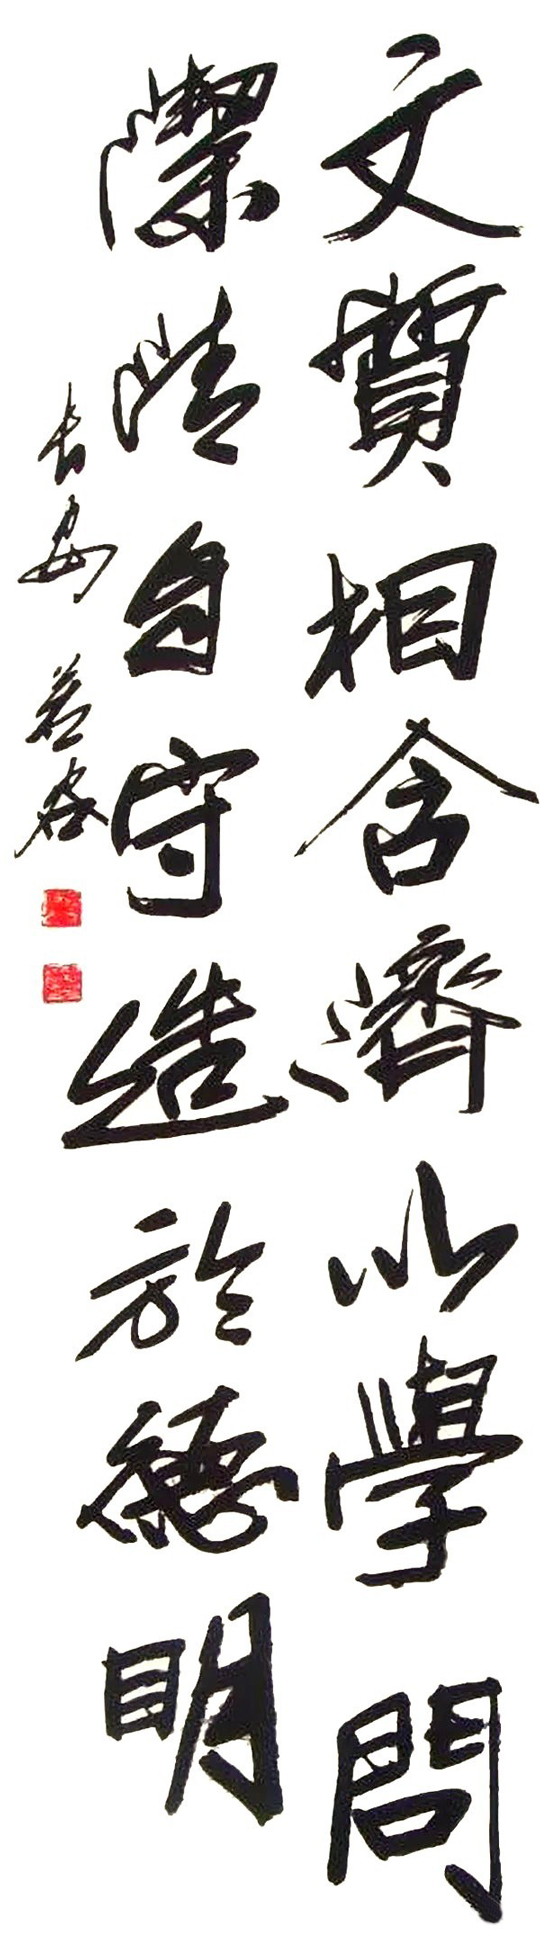 文質相含濟以學問
潔清自守造於德明
長安